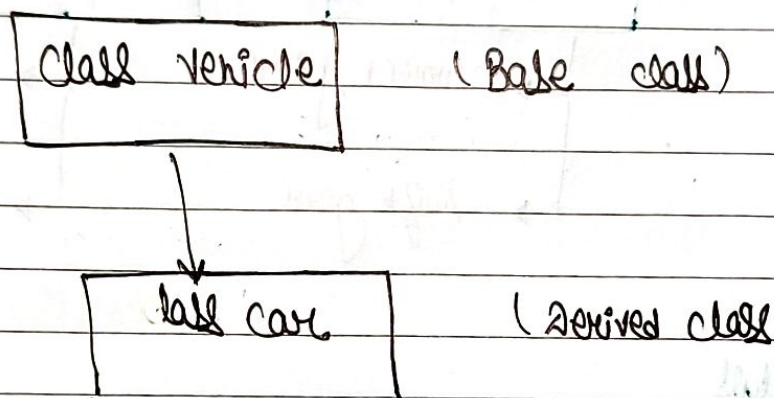 class vehicle (Base class)
lass car (Derived class